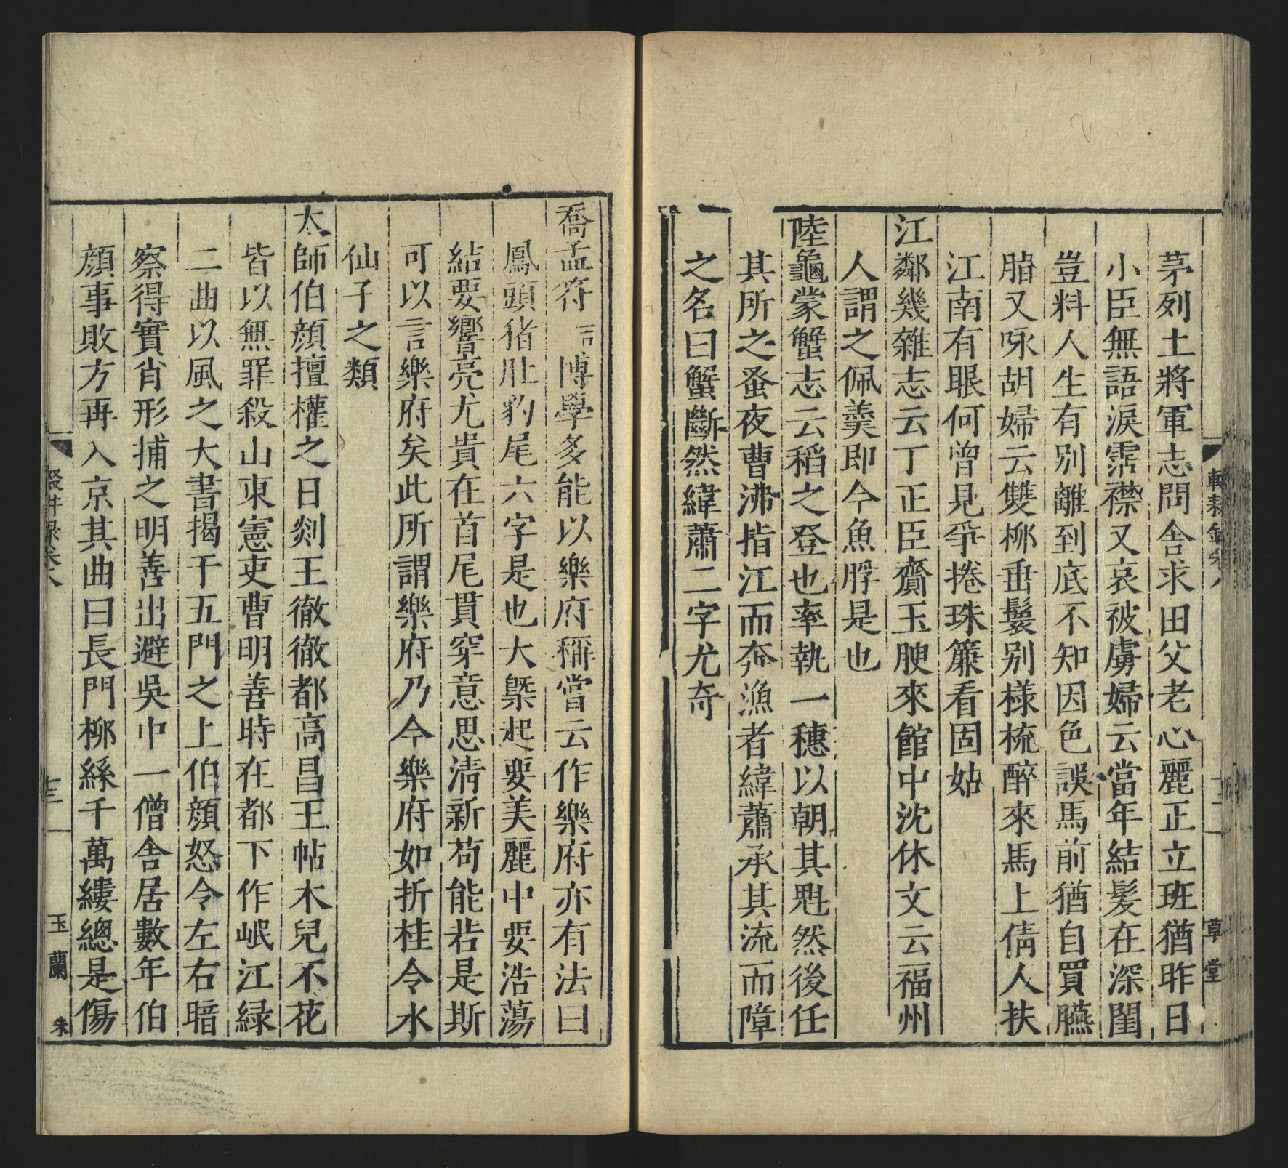 茅列土將軍志問舍求田父老心麗正立班猶昨日
小臣無語淚霑襟又哀被虜婦云當年結髮在深閨
豈料人生有別離到底不知因色誤馬前猶自買臙
脂又咏胡婦云雙柳垂鬟别樣梳醉來馬上倩人扶
江南有眼何曾見爭捲珠簾看固姑
江鄰幾雜志云丁正臣齎玉腴來館中沈休文云福州
人謂之佩羹即今魚脬是也
陸龜蒙蟹志云稻之登也率執一穗以朝其魁然後任
其所之蚤夜曹沸指江而奔漁者緯蕭承其流而障
之名曰蟹斷然緯蕭二字尤奇
草堂
喬孟符吉博學多能以樂府稱嘗云作樂府亦有法曰
鳳頭猪肚豹尾六字是也大槩起要美麗中要浩蕩
結要響亮尤貴在首尾貫穿意思清新苟能若是斯
可以言樂府矣此所謂樂府乃今樂府如折桂令水
仙子之類
太師伯顏擅權之日剡王徹徹都高昌王帖木兒不花
皆以無罪殺山東憲吏曹明善時在都下作岷江緑
二曲以風之大書揭于五門之上伯顏怒令左右暗
察得實肖形捕之明善出避吳中一僧舍居數年伯
顏事敗方再入京其曲曰長門柳絲千萬縷總是傷
卷八
三
玉蘭